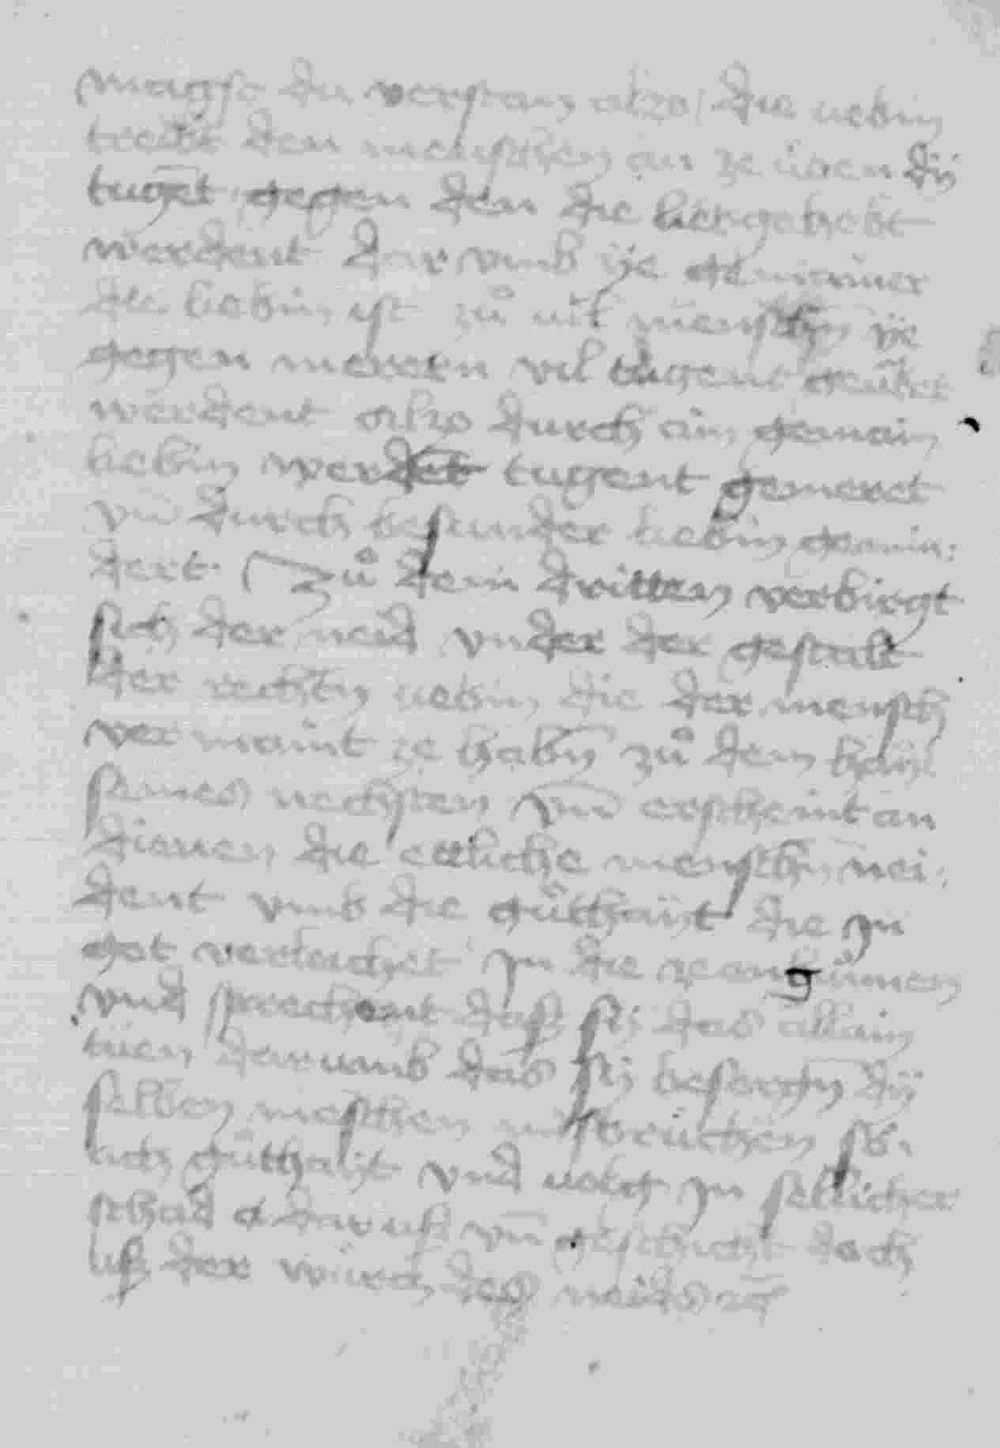 magst du verstan also / die liebin
den menschen an ze üben dÿ
tugēt gegen den die
werdent dar vmb ÿe gemainer
die liebin ist zů vil menschn̄ ÿe
gegen meren vil tugent geübet
werdent also durch ain gemain
liebin werdet tugent gemeret
vn̄ durch besunder liebin gemin:
dert. Zů dem dritten verbirgt
sich der neid vnder der gestalt
der rechtn̄ liebin die der mensch
vermaint ze habn̄ zů dem hail
seines nechsten vn̄ erscheint an
dienen die etliche menschn̄ nei:
dent vmb die gůtthäit die jn
got verleichet jn die
vnd sprechent daß sÿ das allain
tüen darumb das sÿ besorgn̄ dÿ
selben meschen
lich gůtthait vnd volgt jn sellicher
schad darusß vn̄ geschicht doch
usß der des neides